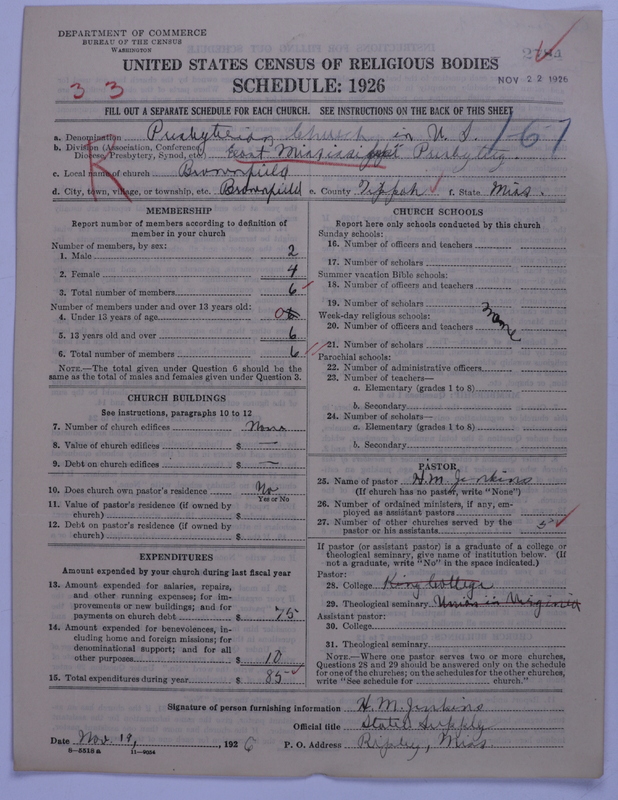 DEPARTMENT OF COMMERCE
BUREAU OF THE CENSUS
WASHINGTON
UNITED STATES CENSUS OF RELIGIOUS BODIES
SCHEDULE: 1926
NOV 22 1926
3 3
FILL OUT A SEPARATE SCHEDULE FOR EACH CHURCH. SEE INSTRUCTIONS ON THE BACK OF THIS SHEET
R
a. Denomination Presbyterian Church in U.S. 1-67
b. Division (Association, Conference, Diocese, Presbytery, Synod, etc.) East Mississippi Presbytery.
c. Local name of church Brownfield
d. City, town, village, or township, etc. Brownfield e. County Tippah f. State Miss.
MEMBERSHIP
Report number of members according to definition of
member in your church
Number of members, by sex:
1. Male 2
2. Female 4
3. Total number of members 6
Number of members under and over 13 years old:
4. Under 13 years of age 0
5. 13 years old and over 6
6. Total number of members 6
NOTE.—The total given under Question 6 should be the
same as the total of males and females given under Question 3.
CHURCH BUILDINGS
See instructions, paragraphs 10 to 12
7. Number of church edifices None
8. Value of church edifices $ —
9. Debt on church edifices $ —
10. Does church own pastor's residence No
Yes or No
11. Value of pastor's residence (if owned by
church) $
12. Debt on pastor's residence (if owned by
church) $
EXPENDITURES
Amount expended by your church during last fiscal year
13. Amount expended for salaries, repairs,
and other running expenses; for im-
provements or new buildings; and for
payments on church debt $ 75
14. Amount expended for benevolences, in-
cluding home and foreign missions; for
denominational support; and for all
other purposes $ 10
15. Total expenditures during year $ 85
CHURCH SCHOOLS
Report here only schools conducted by this church
Sunday schools:
16. Number of officers and teachers
17. Number of scholars
Summer vacation Bible schools:
18. Number of officers and teachers
19. Number of scholars
Week-day religious schools: None
20. Number of officers and teachers
21. Number of scholars
Parochial schools:
22. Number of administrative officers
23. Number of teachers—
a. Elementary (grades 1 to 8)
b. Secondary
24. Number of scholars—
a. Elementary (grades 1 to 8)
b. Secondary
PASTOR
25. Name of pastor H. M. Jenkins
(If church has no pastor, write "None")
26. Number of ordained ministers, if any, em-
ployed as assistant pastors
27. Number of other churches served by the
pastor or his assistants 5
If pastor (or assistant pastor) is a graduate of a college or
theological seminary, give name of institution below. (If
not a graduate, write "No" in the space indicated.)
Pastor:
28. College King College
29. Theological seminary Union in Virginia
Assistant pastor:
30. College
31. Theological seminary
NOTE.—Where one pastor serves two or more churches,
Questions 28 and 29 should be answered only on the schedule
for one of the churches; on the schedules for the other churches,
write "See schedule for church."
Signature of person furnishing information H. M. Jenkins
Official title Stated Supply
Date Nov. 19, 1926 P. O. Address Ripley, Miss.
8-5518a 11-9554